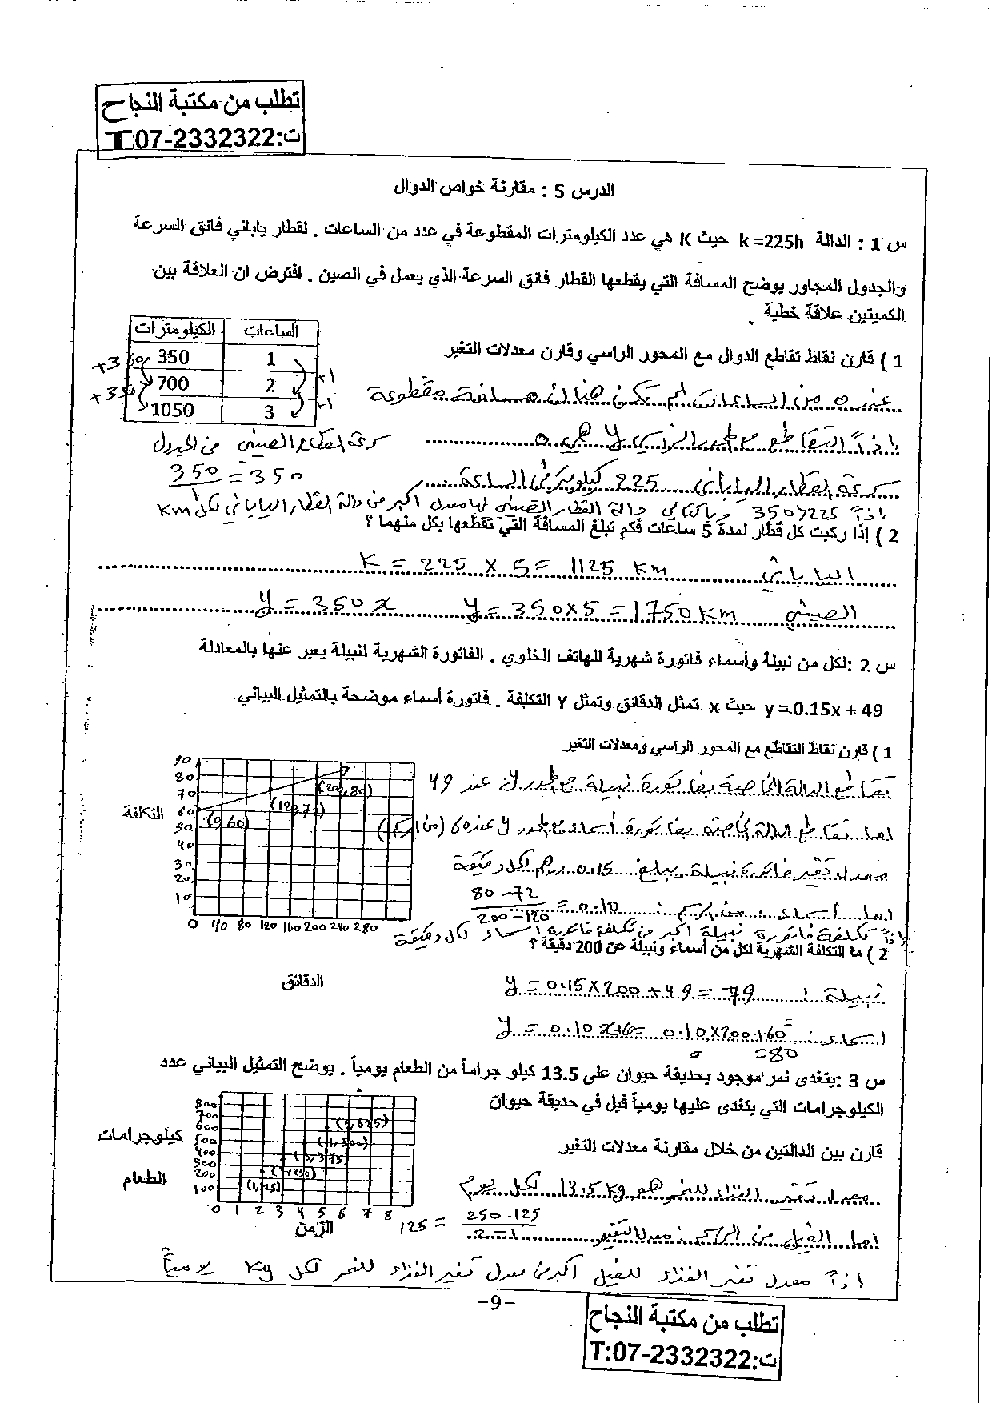 تطلب من مكتبة النجاح
ت:T:07-2332322
الدرس 5 : مقارنة خواص الدوال
س 1 : الدالة k=225h حيث K هي عدد الكيلومترات المقطوعة في عدد من الساعات . لقطار ياباني فائق السرعة
والجدول المجاور يوضح المسافة التي يقطعها القطار فائق السرعة الذي يعمل في الصين . افترض ان العلاقة بين
الكميتين علاقة خطية .
الساعات الكيلومترات
1 350
2 700
3 1050
+1 +1
+350 +350
1 ) قارن نقاط تقاطع الدوال مع المحور الراسي وقارن معدلات التغير
عند 0 من الساعات لم تكن هناك مسافة مقطوعة
إذاً التقاطع مع المحور الرأسي y هي 0
سرعة القطار الصيني من الجدول
350 = 350
سرعة القطار الياباني 225 كيلومتر في الساعة
إذاً 350>225 وبالتالي دالة القطار الصيني لها معدل أكبر من دالة القطار الياباني لكل km
2 ) إذا ركبت كل قطار لمدة 5 ساعات فكم تبلغ المسافة التي تقطعها بكل منهما ؟
الياباني K = 225 X 5 = 1125 Km
الصيني y = 350x y = 350x5 = 1750 Km
س 2 :لكل من نبيلة وأسماء فاتورة شهرية للهاتف الخلوي . الفاتورة الشهرية لنبيلة يعبر عنها بالمعادلة
y=0.15x + 49 حيث x تمثل الدقائق وتمثل y التكلفة . فاتورة أسماء موضحة بالتمثيل البياني
1 ) قارن نقاط التقاطع مع المحور الراسي ومعدلات التغير
تقاطع الدالة الخاصة بفاتورة نبيلة مع المحور y عند 49
أما تقاطع الدالة الخاصة بفاتورة أسماء مع المحور y عند 60 (من الرسم)
معدل تغير فاتورة نبيلة يبلغ 0.15 درهم لكل دقيقة
أما أسماء من الرسم : 80-72 / 200-120 = 0.10
إذاً تكلفة فاتورة نبيلة أكبر من تكلفة فاتورة أسماء لكل دقيقة
90
80
70
60
50
40
30
20
10
0 40 80 120 160 200 240 280
(0,60)
(200,80)
التكلفة
الدقائق
2 ) ما التكلفة الشهرية لكل من أسماء ونبيلة عن 200 دقيقة ؟
نبيلة : y = 0.15 x 200 + 49 = 79
أسماء : y = 0.10 x+60 = 0.10x200+60
=80
س 3 :يتغذى نمر موجود بحديقة حيوان على 13.5 كيلو جراماً من الطعام يومياً . يوضح التمثيل البياني عدد
الكيلوجرامات التي يتغذى عليها يومياً فيل في حديقة حيوان
قارن بين الدالتين من خلال مقارنة معدلات التغير
800
700
600
500
400
300
200
100
0 1 2 3 4 5 6 7 8
كيلوجرامات
الطعام
الزمن
معدل تغير الغذاء للنمر هو 13.5 Kg لكل يوم
أما الفيل من الرسم : معدل التغير 250-125 / 2-1 = 125
إذاً معدل تغير الغذاء للفيل أكبر من معدل تغير الغذاء للنمر لكل Kg يومياً
-9-
تطلب من مكتبة النجاح
ت:T:07-2332322